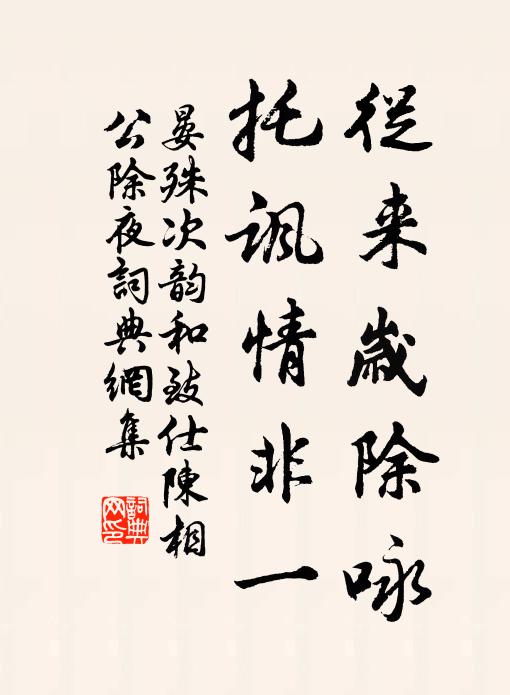 從来歲除咏
托諷情非一
晏殊次韵和致仕陳相
公除夜詞典網集
詞典
网印